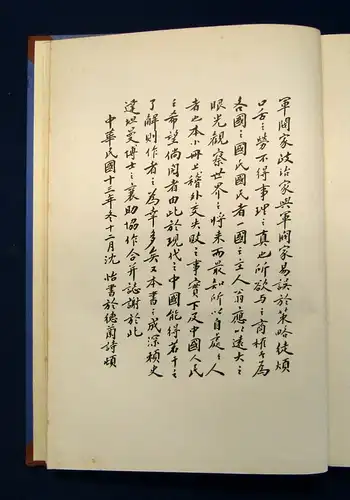 軍閥家政治家與軍閥家易誤於策略徒煩
口舌之勞不得事理之真也所欲與之商榷者為
各國之國民國民者一國之主人翁應以遠大之
眼光觀察世界之將來而最知所以自處之人
者也本小冊上稽外交失敗之事實下及中國人民
之希望倘閱者由此於現代之中國能得若干之
了解則作者之為幸多矣又本書之成深賴史
達坦曼博士之襄助協作合并誌謝於此
中華民國十三年冬十二月沈怡書於德蘭詩頓